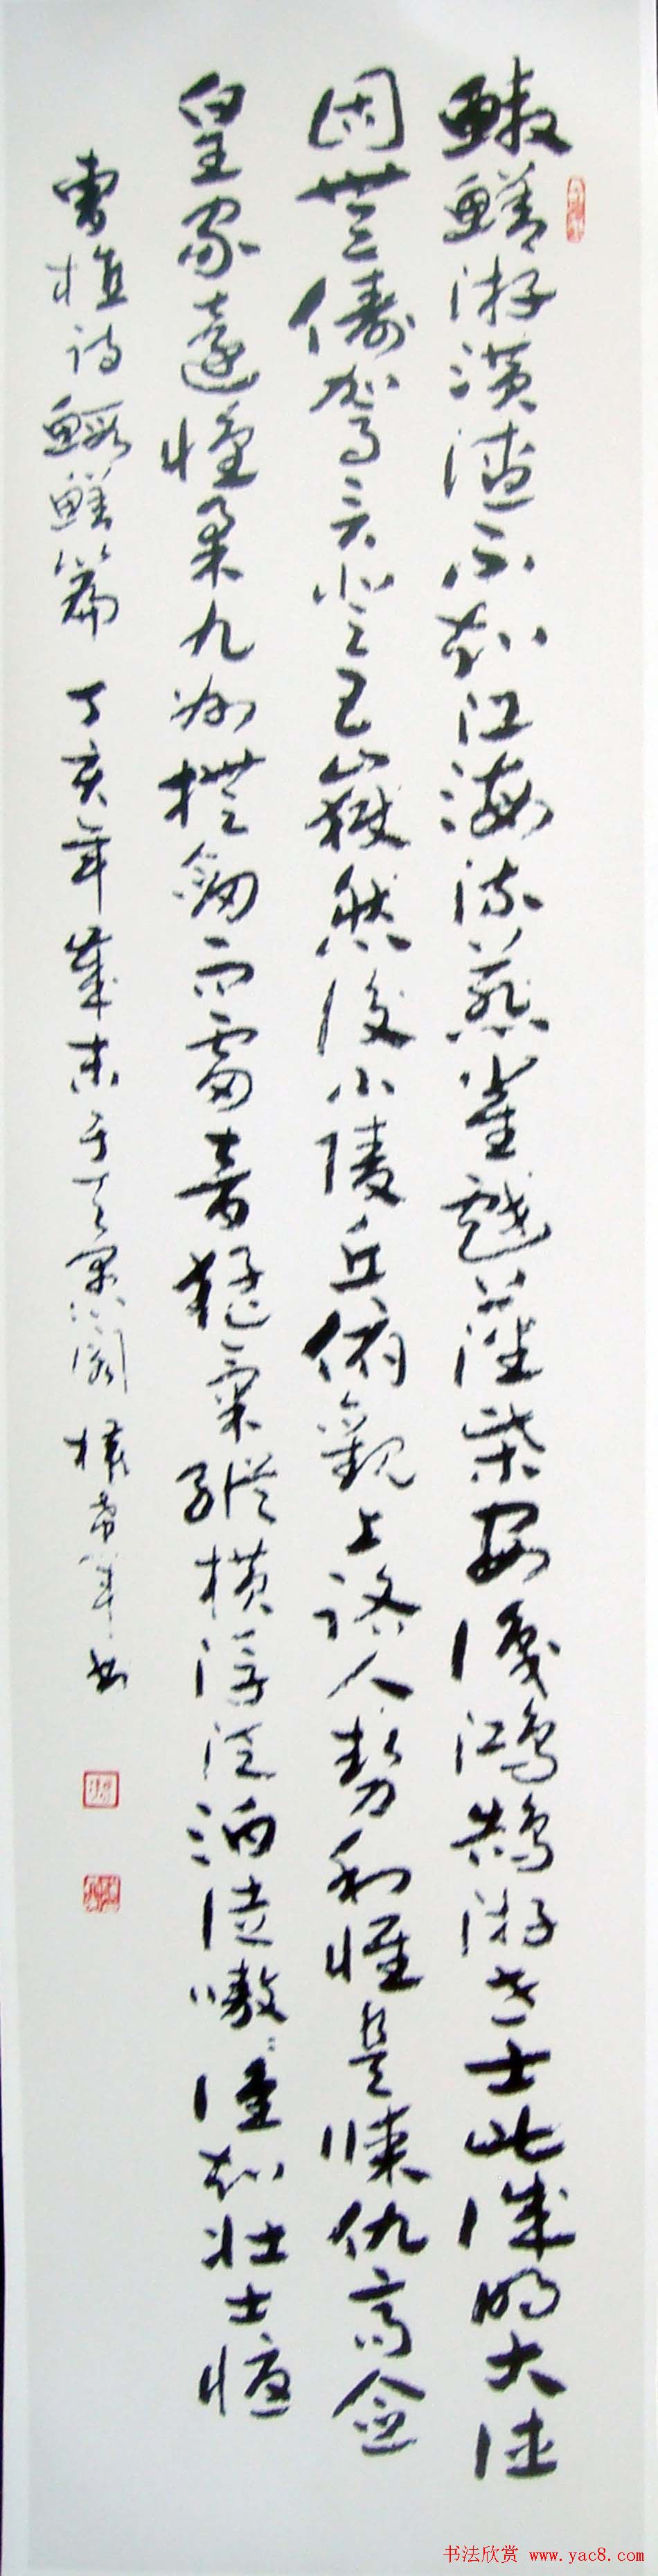 鰕鱔游潢潦不知江海流燕雀戲藩柴安識鴻鵠游世士此誠明大德
固無儔駕言登五嶽然後小陵丘俯觀上路人勢利惟是謀仇高念
皇家遠懷柔九州撫劍而雷音猛氣縱橫浮泛泊徒嗷々誰知壯士憂
曹植詩鰕鱔篇 丁亥年歲末于天閣 權希軍書
书法欣赏 www.yac8.com